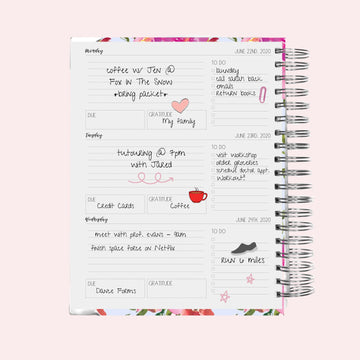 Monday
JUNE 22ND, 2020
coffee w/ Jen @
Fox In The Snow
*bring packet*
TO DO
laundry
call Sarah back
emails
return books
DUE
GRATITUDE
My family
Tuesday
JUNE 23RD, 2020
tutouring @ 7pm
with Jared
TO DO
visit workshop
order groceries
schedule doctor appt.
workout
DUE
Credit Cards
GRATITUDE
Coffee
Wednesday
JUNE 24TH, 2020
meet with prof. evans - 9am
finish space force on Netflix
TO DO
RUN 6 MILES
DUE
Dance Forms
GRATITUDE